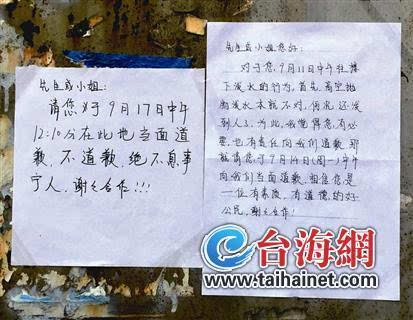 先生或小姐：
请您于9月17日中午
12:10分在此地当面道
歉，不道歉，绝不息事
宁人，谢谢合作!!!
先生或小姐您好：
对于您9月11日中午往楼
下泼水的行为，首先，高空抛
物泼水本就不对，何况还泼
到人了。为此，我觉得您有必
要，也有责任向我们道歉。那
就请您于9月14日(周一)中午
向我们当面道歉，相信您是
一位有素质，有道德的好
公民，谢谢合作！
台海網
www.taihainet.com